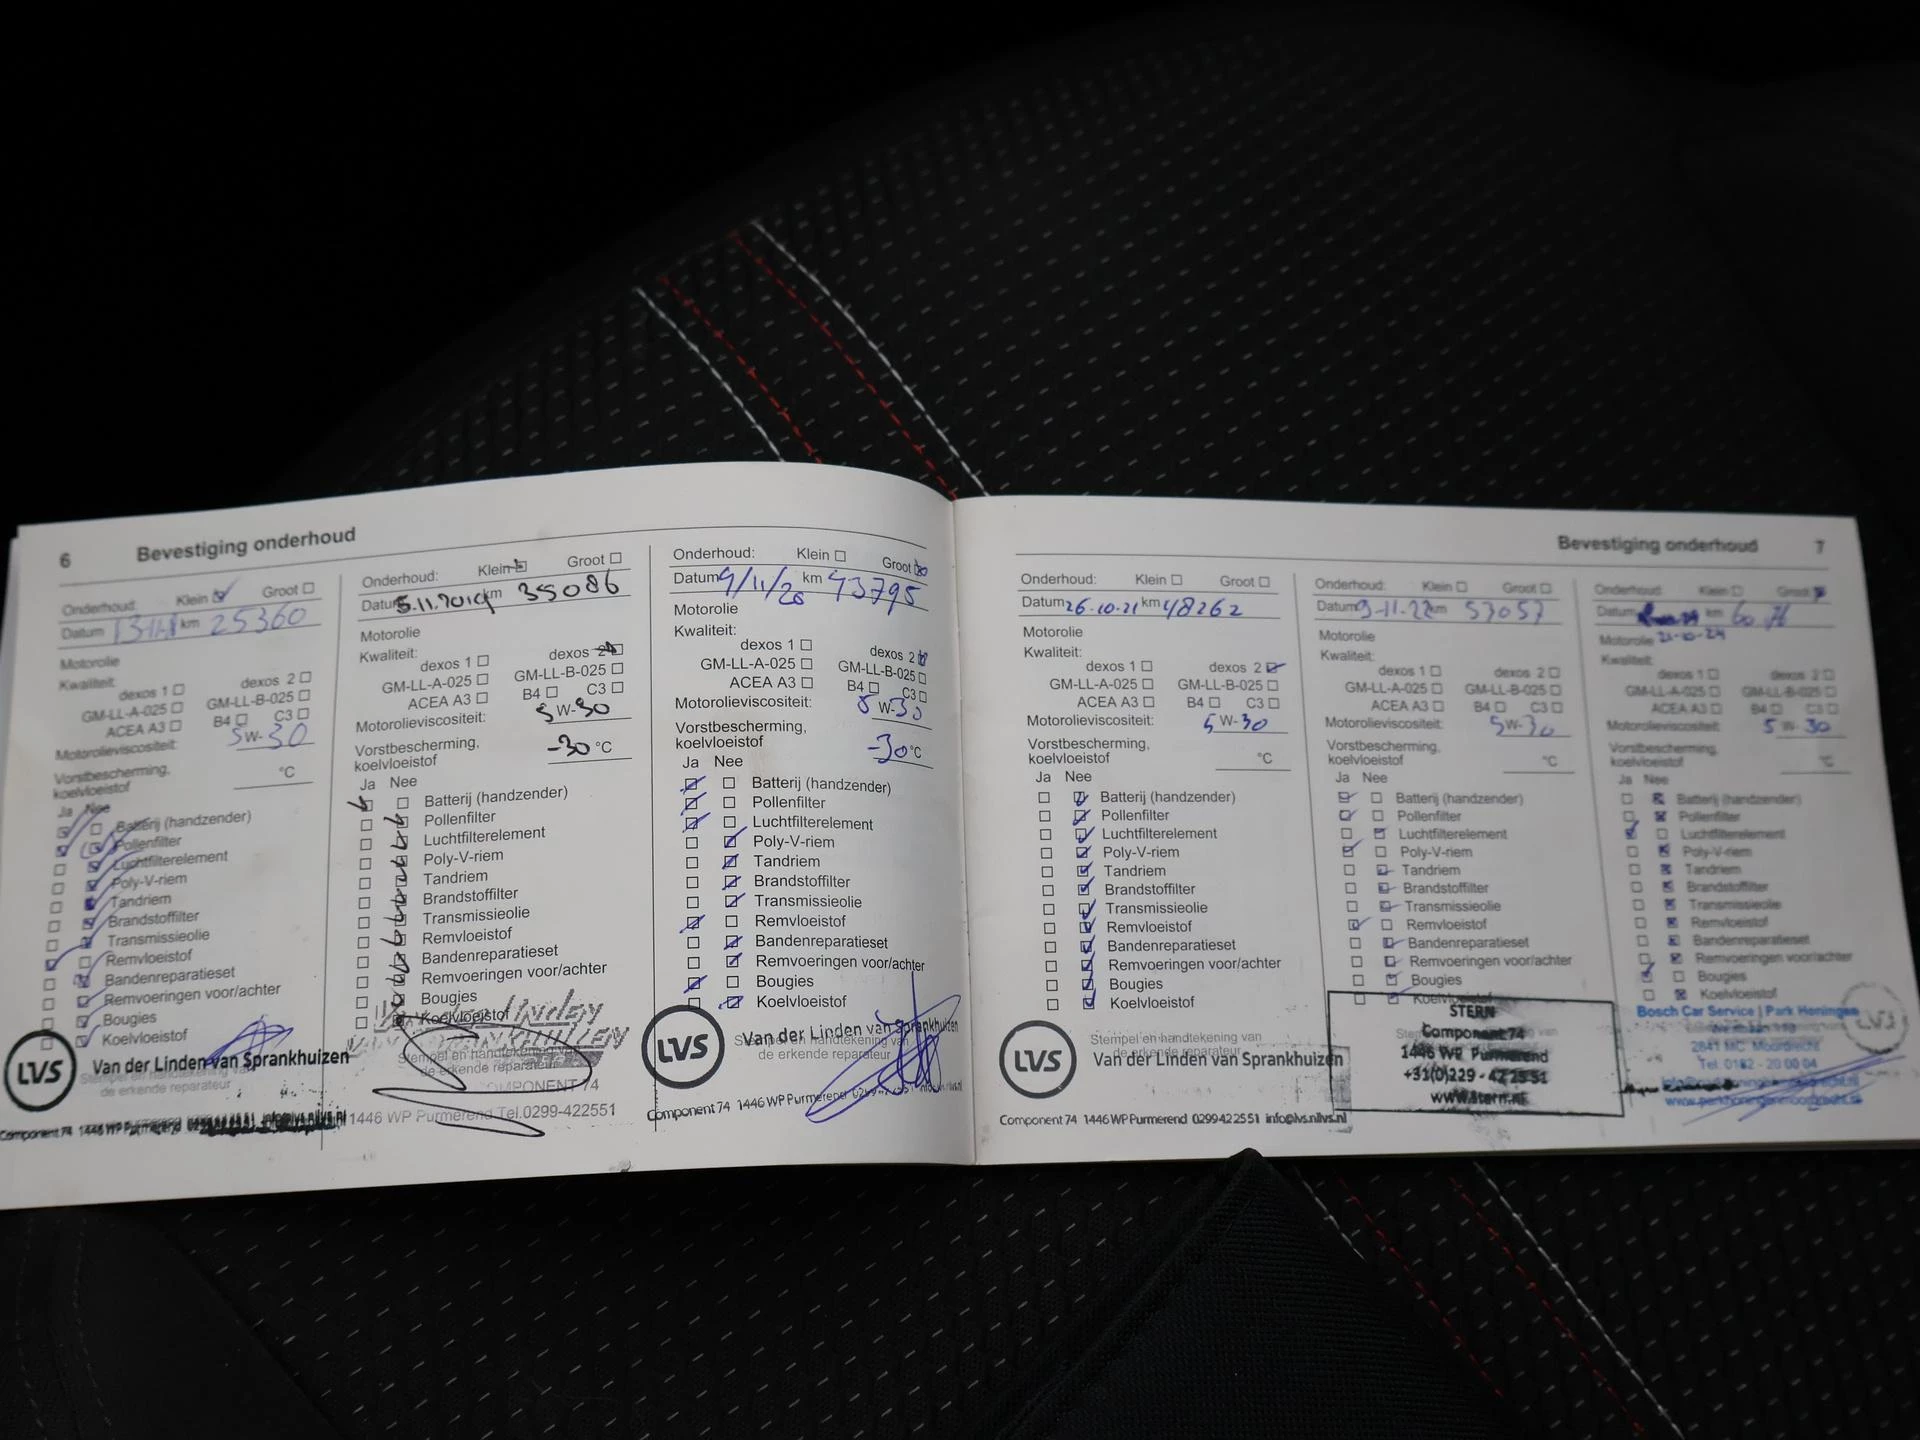 6 Bevestiging onderhoud
Onderhoud: Klein Groot
Datum km 25360
Motorolie
Kwaliteit:
dexos 1 dexos 2
GM-LL-A-025 GM-LL-B-025
ACEA A3 B4 C3
Motorolieviscositeit: 5 W-30
Vorstbescherming,
koelvloeistof °C
Ja Nee
Batterij (handzender)
Pollenfilter
Luchtfilterelement
Poly-V-riem
Tandriem
Brandstoffilter
Transmissieolie
Remvloeistof
Bandenreparatieset
Remvoeringen voor/achter
Bougies
Koelvloeistof
LVS Van der Linden van Sprankhuizen
Stempel en handtekening van
de erkende reparateur
Component 74 1446 WP Purmerend
Onderhoud: Klein Groot
Datum 5.11.2019 km 35086
Motorolie
Kwaliteit:
dexos 1 dexos 2
GM-LL-A-025 GM-LL-B-025
ACEA A3 B4 C3
Motorolieviscositeit: 5 W-30
Vorstbescherming,
koelvloeistof -30 °C
Ja Nee
Batterij (handzender)
Pollenfilter
Luchtfilterelement
Poly-V-riem
Tandriem
Brandstoffilter
Transmissieolie
Remvloeistof
Bandenreparatieset
Remvoeringen voor/achter
Bougies
Koelvloeistof
Stempel en handtekening van
de erkende reparateur
COMPONENT 74
1446 WP Purmerend Tel.0299-422551
Onderhoud: Klein Groot
Datum 9/11/20 km 43795
Motorolie
Kwaliteit:
dexos 1 dexos 2
GM-LL-A-025 GM-LL-B-025
ACEA A3 B4 C3
Motorolieviscositeit: 5 W-30
Vorstbescherming,
koelvloeistof -30 °C
Ja Nee
Batterij (handzender)
Pollenfilter
Luchtfilterelement
Poly-V-riem
Tandriem
Brandstoffilter
Transmissieolie
Remvloeistof
Bandenreparatieset
Remvoeringen voor/achter
Bougies
Koelvloeistof
LVS Van der Linden van Sprankhuizen
Stempel en handtekening van
de erkende reparateur
Component 74 1446 WP Purmerend
Bevestiging onderhoud 7
Onderhoud: Klein Groot
Datum 26-10-21 km 48262
Motorolie
Kwaliteit:
dexos 1 dexos 2
GM-LL-A-025 GM-LL-B-025
ACEA A3 B4 C3
Motorolieviscositeit: 5 W-30
Vorstbescherming,
koelvloeistof °C
Ja Nee
Batterij (handzender)
Pollenfilter
Luchtfilterelement
Poly-V-riem
Tandriem
Brandstoffilter
Transmissieolie
Remvloeistof
Bandenreparatieset
Remvoeringen voor/achter
Bougies
Koelvloeistof
Stempel en handtekening van
de erkende reparateur
LVS Van der Linden van Sprankhuizen
Component 74 1446 WP Purmerend 0299422551 info@lvs.nl
Onderhoud: Klein Groot
Datum 9-11-22 km 53057
Motorolie
Kwaliteit:
dexos 1 dexos 2
GM-LL-A-025 GM-LL-B-025
ACEA A3 B4 C3
Motorolieviscositeit: 5 W-30
Vorstbescherming,
koelvloeistof °C
Ja Nee
Batterij (handzender)
Pollenfilter
Luchtfilterelement
Poly-V-riem
Tandriem
Brandstoffilter
Transmissieolie
Remvloeistof
Bandenreparatieset
Remvoeringen voor/achter
Bougies
Koelvloeistof
STERN
Component 74
1446 WP Purmerend
+31(0)229 - 42 25 51
www.stern.nl
Onderhoud: Klein Groot
Datum km
Motorolie 21-10-24
Kwaliteit:
dexos 1 dexos 2
GM-LL-A-025 GM-LL-B-025
ACEA A3 B4 C3
Motorolieviscositeit: 5 W-30
Vorstbescherming,
koelvloeistof °C
Ja Nee
Batterij (handzender)
Pollenfilter
Luchtfilterelement
Poly-V-riem
Tandriem
Brandstoffilter
Transmissieolie
Remvloeistof
Bandenreparatieset
Remvoeringen voor/achter
Bougies
Koelvloeistof
Bosch Car Service | Park Honingen
2841 MC Moordrecht
Tel. 0182 - 20 00 04